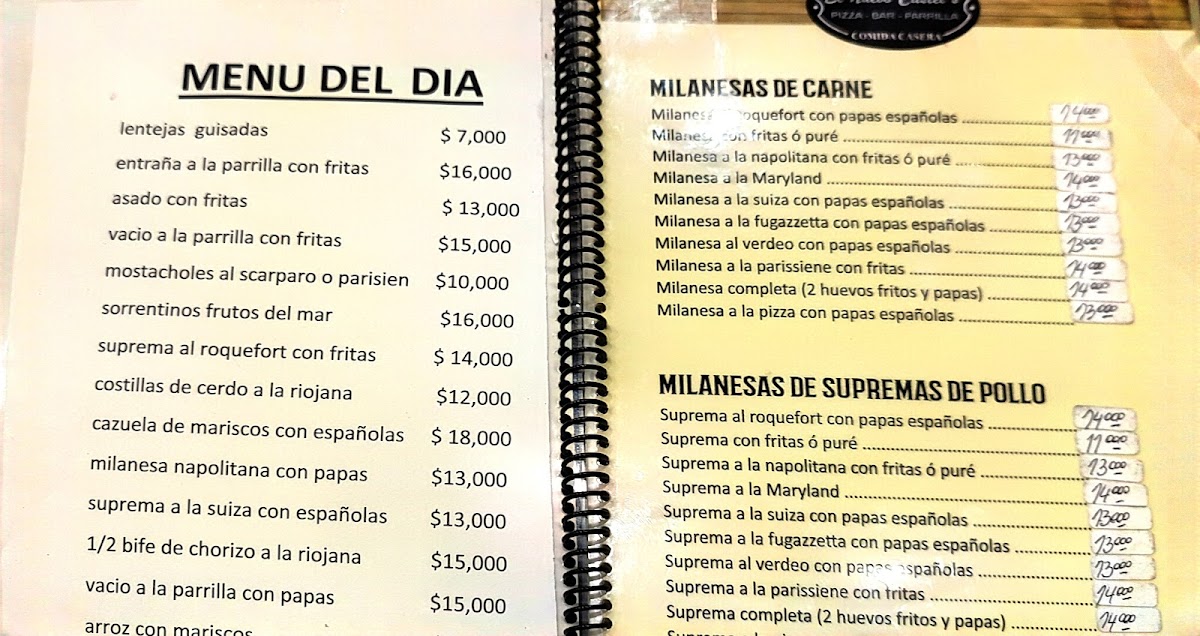 MENU DEL DIA
lentejas guisadas $ 7,000
entraña a la parrilla con fritas $16,000
asado con fritas $ 13,000
vacio a la parrilla con fritas $15,000
mostacholes al scarparo o parisien $10,000
sorrentinos frutos del mar $16,000
suprema al roquefort con fritas $ 14,000
costillas de cerdo a la riojana $12,000
cazuela de mariscos con españolas $ 18,000
milanesa napolitana con papas $13,000
suprema a la suiza con españolas $13,000
1/2 bife de chorizo a la riojana $15,000
vacio a la parrilla con papas $15,000
arroz con mariscos
PIZZA - BAR - PARRILLA
COMIDA CASERA
MILANESAS DE CARNE
roquefort con papas españolas 14000
Milanesa con fritas ó puré 11000
Milanesa a la napolitana con fritas ó puré 13000
Milanesa a la Maryland 14000
Milanesa a la suiza con papas españolas 13000
Milanesa a la fugazzetta con papas españolas 13000
Milanesa al verdeo con papas españolas 13000
Milanesa a la parissiene con fritas 14000
Milanesa completa (2 huevos fritos y papas) 14000
Milanesa a la pizza con papas españolas 13000
MILANESAS DE SUPREMAS DE POLLO
Suprema al roquefort con papas españolas 14000
Suprema con fritas ó puré 11000
Suprema a la napolitana con fritas ó puré 13000
Suprema a la Maryland 14000
Suprema a la suiza con papas españolas 13000
Suprema a la fugazzetta con papas españolas 13000
Suprema al verdeo con papas españolas 13000
Suprema a la parissiene con fritas 14000
Suprema completa (2 huevos fritos y papas) 14000